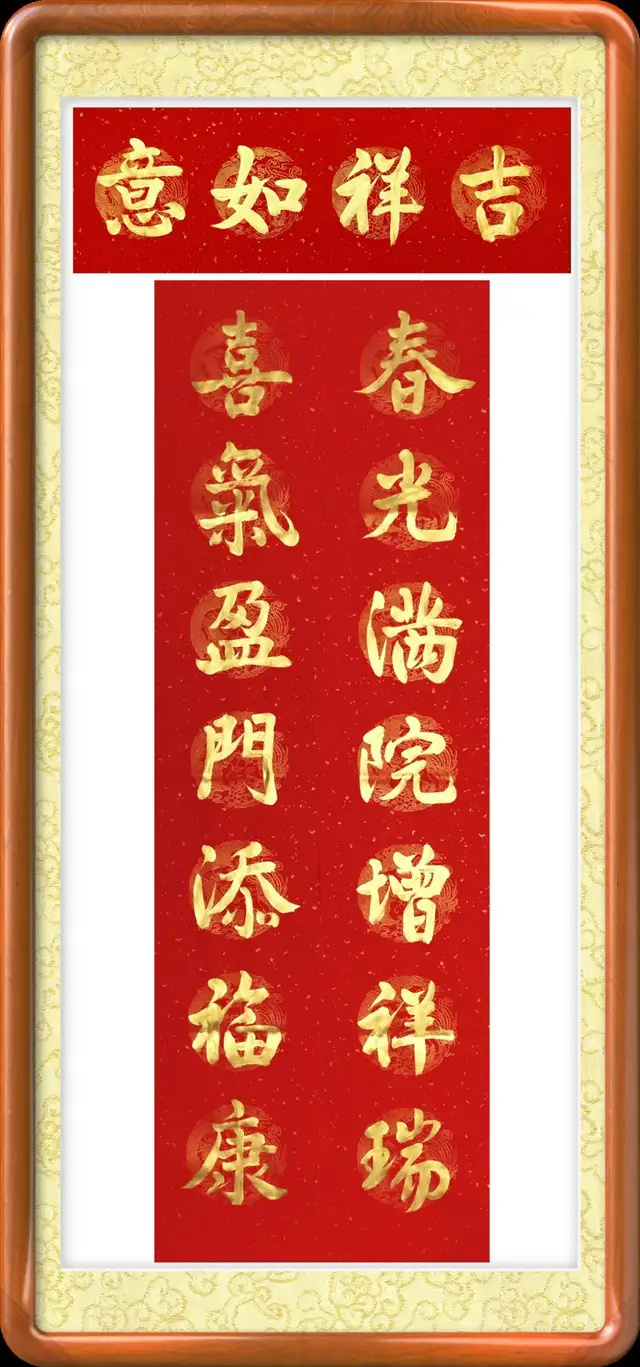 吉祥如意
春光满院增祥瑞
喜氣盈門添福康